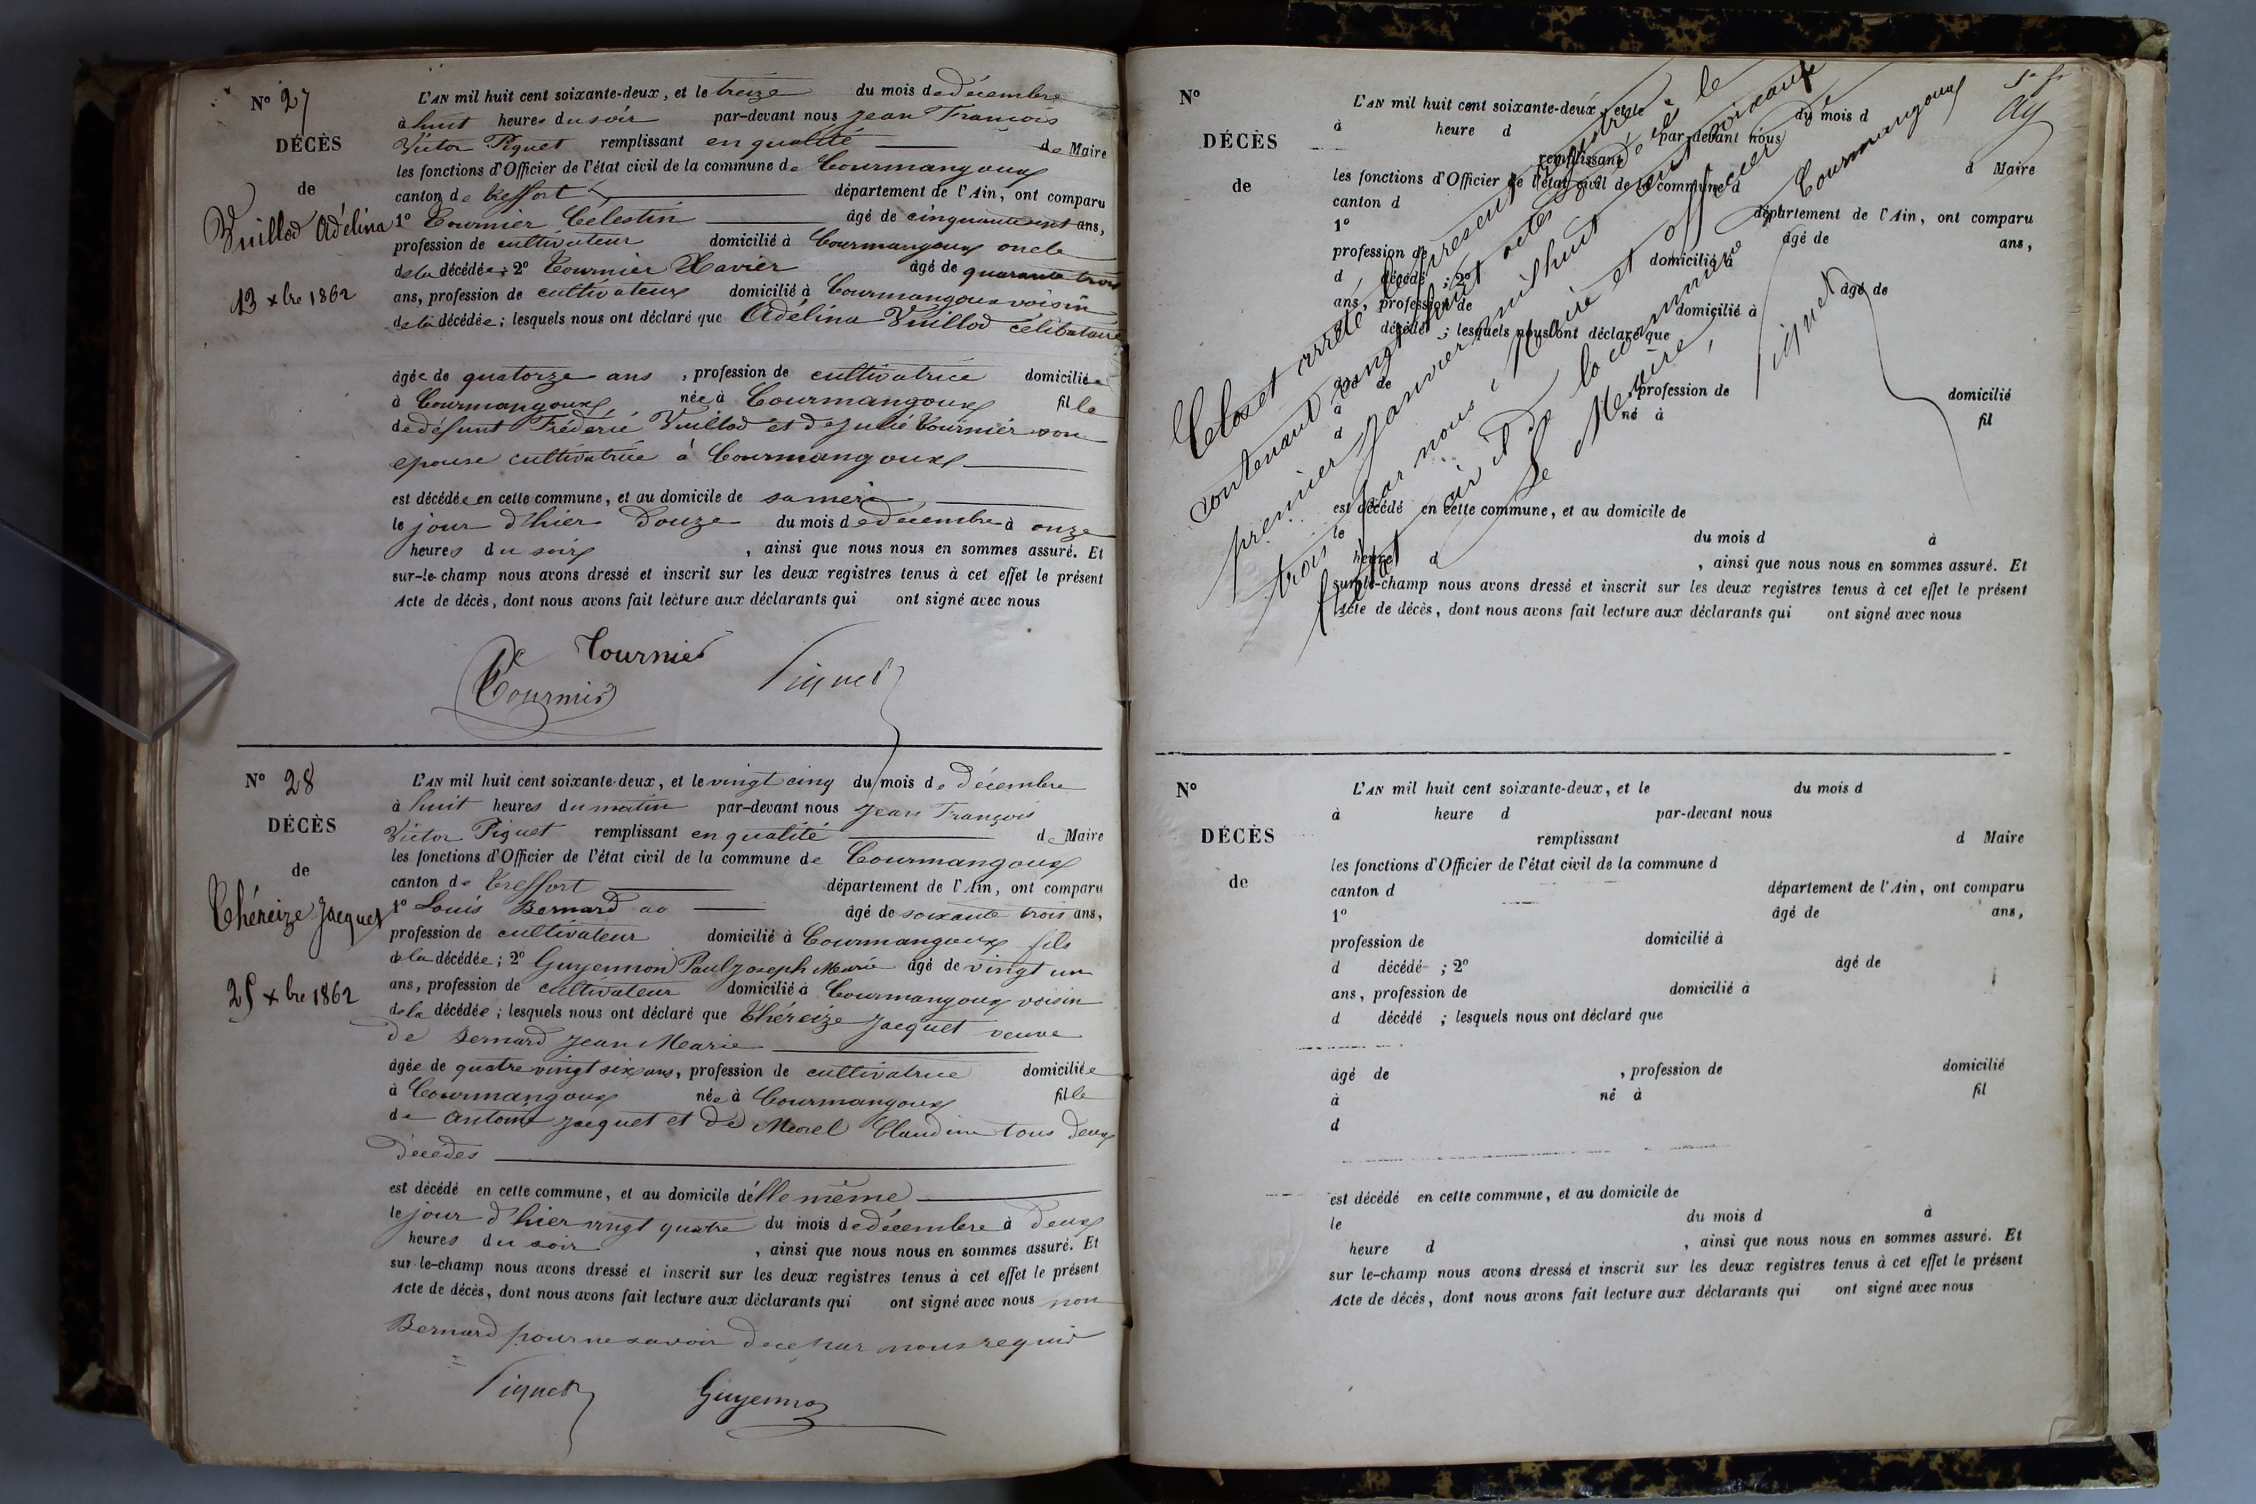 N° 27
DÉCÈS
de
Vuillod Adélina
13 xbre 1862
L'AN mil huit cent soixante-deux, et le treize du mois de décembre
à huit heures du soir par-devant nous Jean François
Victor Piquet remplissant en qualité de Maire
les fonctions d'Officier de l'état civil de la commune de Courmangoux
canton de Treffort département de l'Ain, ont comparu
1° Tournier Célestin âgé de cinquante ans,
profession de cultivateur domicilié à Courmangoux oncle
de la décédée; 2° Tournier Xavier âgé de quarante trois
ans, profession de cultivateur domicilié à Courmangoux voisin
de la décédée; lesquels nous ont déclaré que Adélina Vuillod célibataire
âgée de quatorze ans, profession de cultivatrice domiciliée
à Courmangoux née à Courmangoux fille
de défunt Fréderic Vuillod et de Julie Tournier son
épouse cultivatrice à Courmangoux
est décédée en cette commune, et au domicile de sa mère
le jour d'hier Douze du mois de décembre à onze
heures du soir, ainsi que nous nous en sommes assuré. Et
sur-le-champ nous avons dressé et inscrit sur les deux registres tenus à cet effet le présent
Acte de décès, dont nous avons fait lecture aux déclarants qui ont signé avec nous
Tournier
Tournier Piquet
N° 28
DÉCÈS
de
Théreize Jacquet
25 xbre 1862
L'AN mil huit cent soixante-deux, et le vingt cinq du mois de décembre
à huit heures du matin par-devant nous Jean François
Victor Piquet remplissant en qualité de Maire
les fonctions d'Officier de l'état civil de la commune de Courmangoux
canton de Treffort département de l'Ain, ont comparu
1° Louis Bernard âgé de soixante trois ans,
profession de cultivateur domicilié à Courmangoux fils
de la décédée; 2° Guyennon Paul Joseph Marie âgé de vingt un
ans, profession de cultivateur domicilié à Courmangoux voisin
de la décédée; lesquels nous ont déclaré que Théreize Jacquet veuve
de Bernard Jean Marie
âgée de quatre vingt six ans, profession de cultivatrice domiciliée
à Courmangoux née à Courmangoux fille
de Antoine Jacquet et de Morel Claudine tous deux
décédés
est décédé en cette commune, et au domicile d'elle même
le jour d'hier vingt quatre du mois de décembre à deux
heures du soir, ainsi que nous nous en sommes assuré. Et
sur-le-champ nous avons dressé et inscrit sur les deux registres tenus à cet effet le présent
Acte de décès, dont nous avons fait lecture aux déclarants qui ont signé avec nous non
Bernard pour ne savoir de ce par nous requis
Piquet Guyennon
N°
DÉCÈS
de
L'AN mil huit cent soixante-deux, et le du mois d
à heure d par-devant nous
remplissant d Maire
les fonctions d'Officier de l'état civil de la commune d
canton d département de l'Ain, ont comparu
1° âgé de ans,
profession de domicilié à
d décédé ; 2° âgé de
ans, profession de domicilié à
d décédé ; lesquels nous ont déclaré que
âgé de , profession de domicilié
à né à fil
d
est décédé en cette commune, et au domicile de
le du mois d à
heure d , ainsi que nous nous en sommes assuré. Et
sur-le-champ nous avons dressé et inscrit sur les deux registres tenus à cet effet le présent
Acte de décès, dont nous avons fait lecture aux déclarants qui ont signé avec nous
Clos et arrêté le présent registre
contenant vingt huit actes de décès le
premier Janvier mil huit cent soixante
trois par nous Maire et officier de
l'état civil de la commune de Courmangoux
Le Maire,
Piquet
N°
DÉCÈS
de
L'AN mil huit cent soixante-deux, et le du mois d
à heure d par-devant nous
remplissant d Maire
les fonctions d'Officier de l'état civil de la commune d
canton d département de l'Ain, ont comparu
1° âgé de ans,
profession de domicilié à
d décédé ; 2° âgé de
ans, profession de domicilié à
d décédé ; lesquels nous ont déclaré que
âgé de , profession de domicilié
à né à fil
d
est décédé en cette commune, et au domicile de
le du mois d à
heure d , ainsi que nous nous en sommes assuré. Et
sur le-champ nous avons dressé et inscrit sur les deux registres tenus à cet effet le présent
Acte de décès, dont nous avons fait lecture aux déclarants qui ont signé avec nous